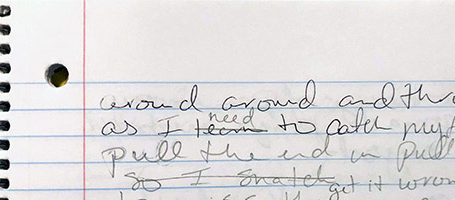 around around and thr
as I need learn to catch myt
pull the end in pull
so I snatch get it wron